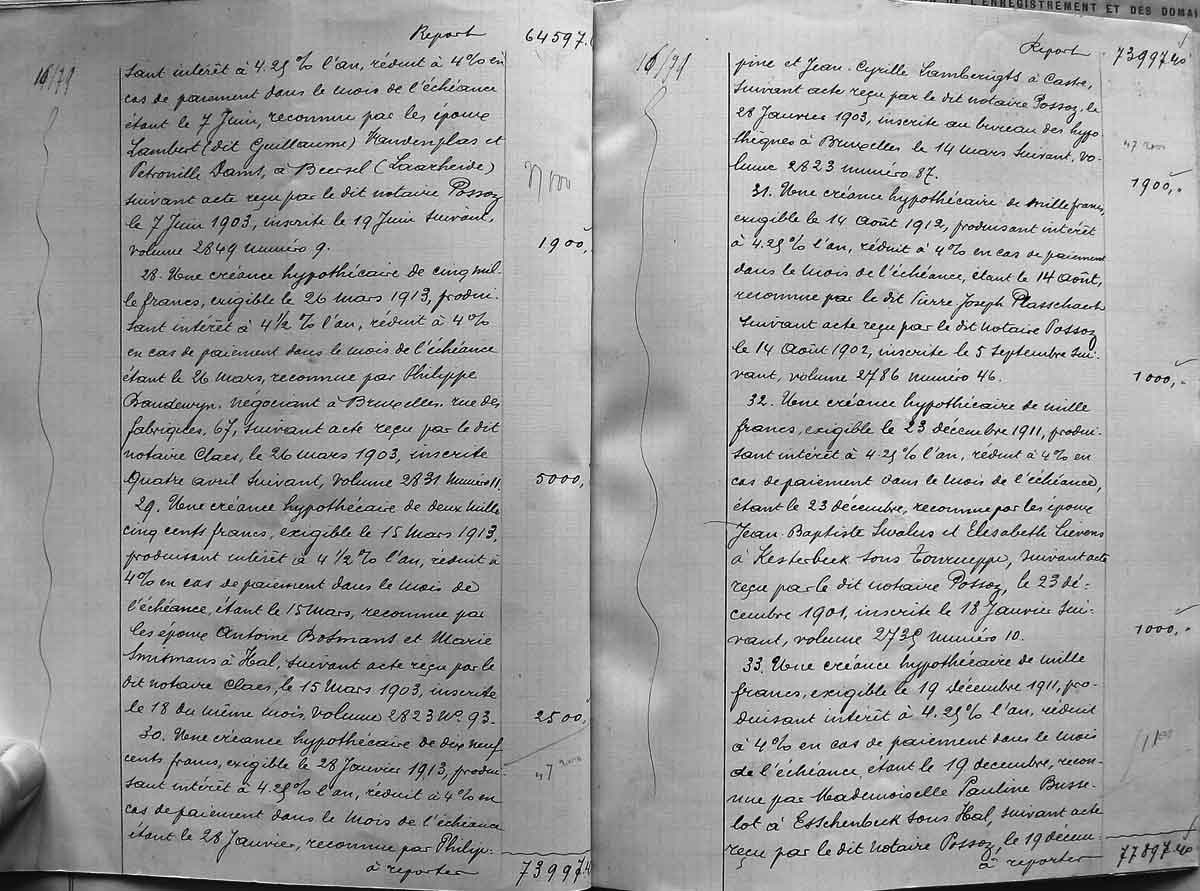 DE L'ENREGISTREMENT ET DES DOMAI
Report 64597.
16/71
sant intérêt à 4.25% l'an, réduit à 4% en
cas de paiement dans le mois de l'échéance
étant le 7 Juin, reconnue par les époux
Lambert (dit Guillaume) Vandenplas et
Petronille Dams, à Beersel (Laarheide)
suivant acte reçu par le dit notaire Possoz
le 7 Juin 1903, inscrite le 19 Juin suivant,
volume 2849 numéro 9. 1900,-
28. Une créance hypothécaire de cinq mil-
le francs, exigible le 26 mars 1913, produi-
sant intérêt à 4 1/2 % l'an, réduit à 4%
en cas de paiement dans le mois de l'échéance
étant le 26 Mars, reconnue par Philippe
Baudewyn, négociant à Bruxelles, rue des
fabriques, 67, suivant acte reçu par le dit
notaire Claes, le 26 mars 1903, inscrite
quatre avril suivant, volume 2831 numéro 11. 5000,
29. Une créance hypothécaire de deux mille
cinq cents francs, exigible le 15 Mars 1913,
produisant intérêt à 4 1/2 % l'an, réduit à
4% en cas de paiement dans le mois de
l'échéance, étant le 15 Mars, reconnue par
les époux Antoine Bosmans et Marie
Smismans à Hal, suivant acte reçu par le
dit notaire Claes, le 15 Mars 1903, inscrite
le 18 du même mois, volume 2823 No. 93. 2500,
30. Une créance hypothécaire de dix neuf
cents francs, exigible le 28 Janvier 1913, produi-
47
sant intérêt à 4.25% l'an, réduit à 4% en
cas de paiement dans le mois de l'échéance
étant le 28 Janvier, reconnue par Philip-
à reporter 73997.40
Report 73997.40
16/71
pine et Jean-Cyrille Lamberigts à Castre,
suivant acte reçu par le dit notaire Possoz, le
28 Janvier 1903, inscrite au bureau des hypo-
thèques à Bruxelles le 14 mars suivant, vo-
47
lume 2823 numéro 87. 1900,-
31. Une créance hypothécaire de mille francs,
exigible le 14 Août 1912, produisant intérêt
à 4.25% l'an, réduit à 4% en cas de paiement
dans le mois de l'échéance, étant le 14 Août,
reconnue par le dit Pierre Joseph Plasschaert
suivant acte reçu par le dit notaire Possoz
le 14 Août 1902, inscrite le 5 septembre sui-
vant, volume 2786 numéro 46. 1000,-
32. Une créance hypothécaire de mille
francs, exigible le 23 décembre 1911, produi-
sant intérêt à 4.25% l'an, réduit à 4% en
cas de paiement dans le mois de l'échéance,
étant le 23 décembre, reconnue par les époux
Jean-Baptiste Swalus et Elisabeth Lievens
à Kesterbeek sous Tourneppe, suivant acte
reçu par le dit notaire Possoz, le 23 dé-
cembre 1901, inscrite le 18 Janvier sui-
vant, volume 2735 numéro 10. 1000,-
33. Une créance hypothécaire de mille
francs, exigible le 19 décembre 1911, pro-
duisant intérêt à 4.25% l'an, réduit
à 4% en cas de paiement dans le mois
de l'échéance, étant le 19 décembre, recon-
nue par Mademoiselle Pauline Busse-
lot à Esschenbeek sous Hal, suivant acte
reçu par le dit notaire Possoz, le 19 décem-
à reporter 77897.40